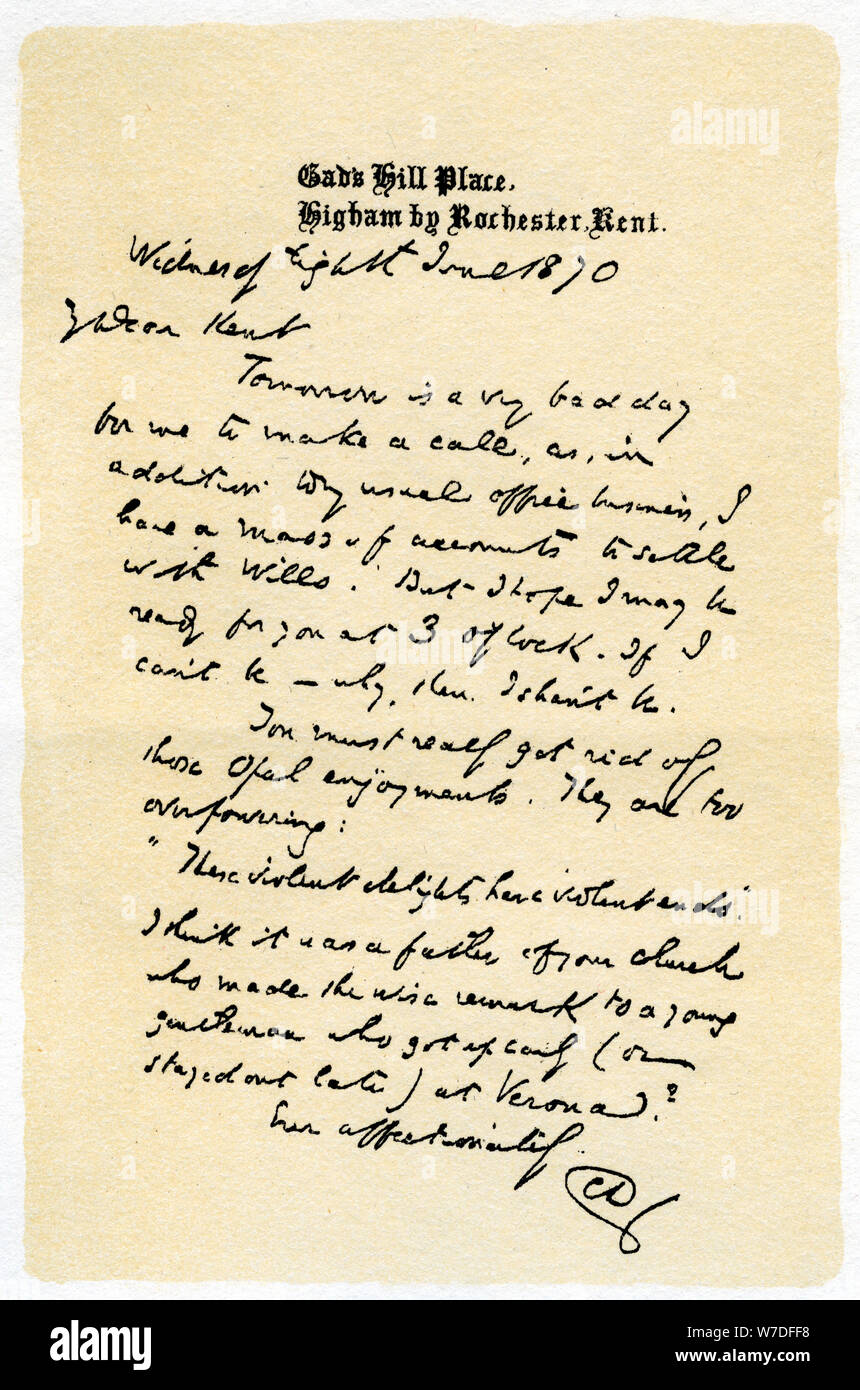 Gad's Hill Place,
Higham by Rochester, Kent.
Wednesday Eighth June 1870
My Dear Kent
Tomorrow is a very bad day
for me to make a call, as, in
addition to my usual office business, I
have a mass of accounts to settle
with Wills. But I hope I may be
ready for you at 3 o'Clock. If I
can't be – why, then I shan't be.
You must really get rid of
those Opal enjoyments. They are too
overpowering:
"These violent delights have violent ends".
I think it was a father of your church
who made the wise remark to a young
gentleman who got up early (or
stayed out late) at Verona?
Ever affectionately
CD
alamy
alamy
alamy
alamy
W7DFF8
www.alamy.com